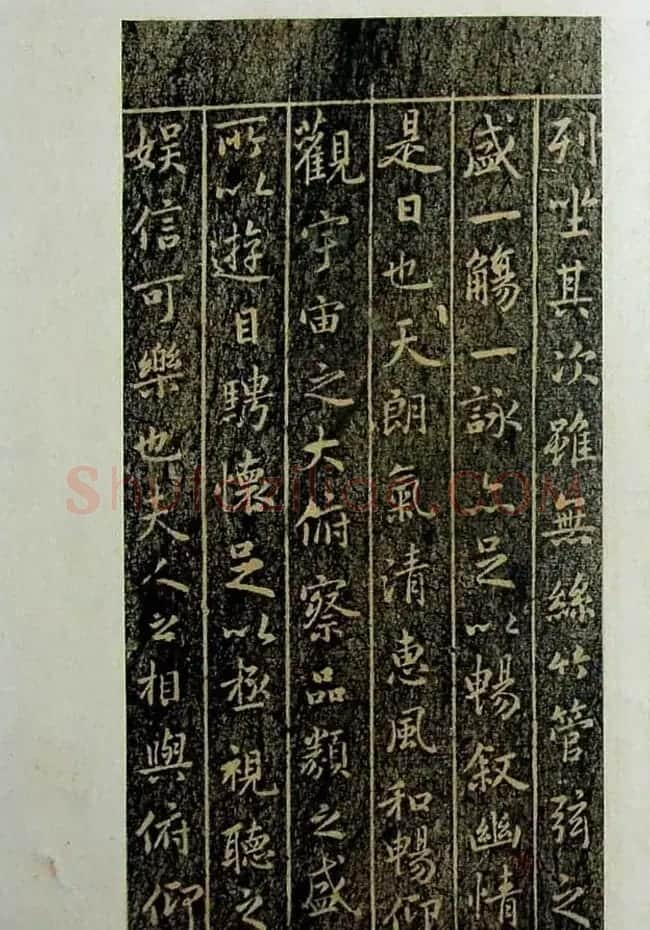 列坐其次雖無絲竹管弦之
盛一觴一詠亦足以暢叙幽情
是日也天朗氣清惠風和暢仰
觀宇宙之大俯察品類之盛
所以遊目騁懷足以極視聽之
娱信可樂也夫人之相與俯仰
Shufaziliao.COM